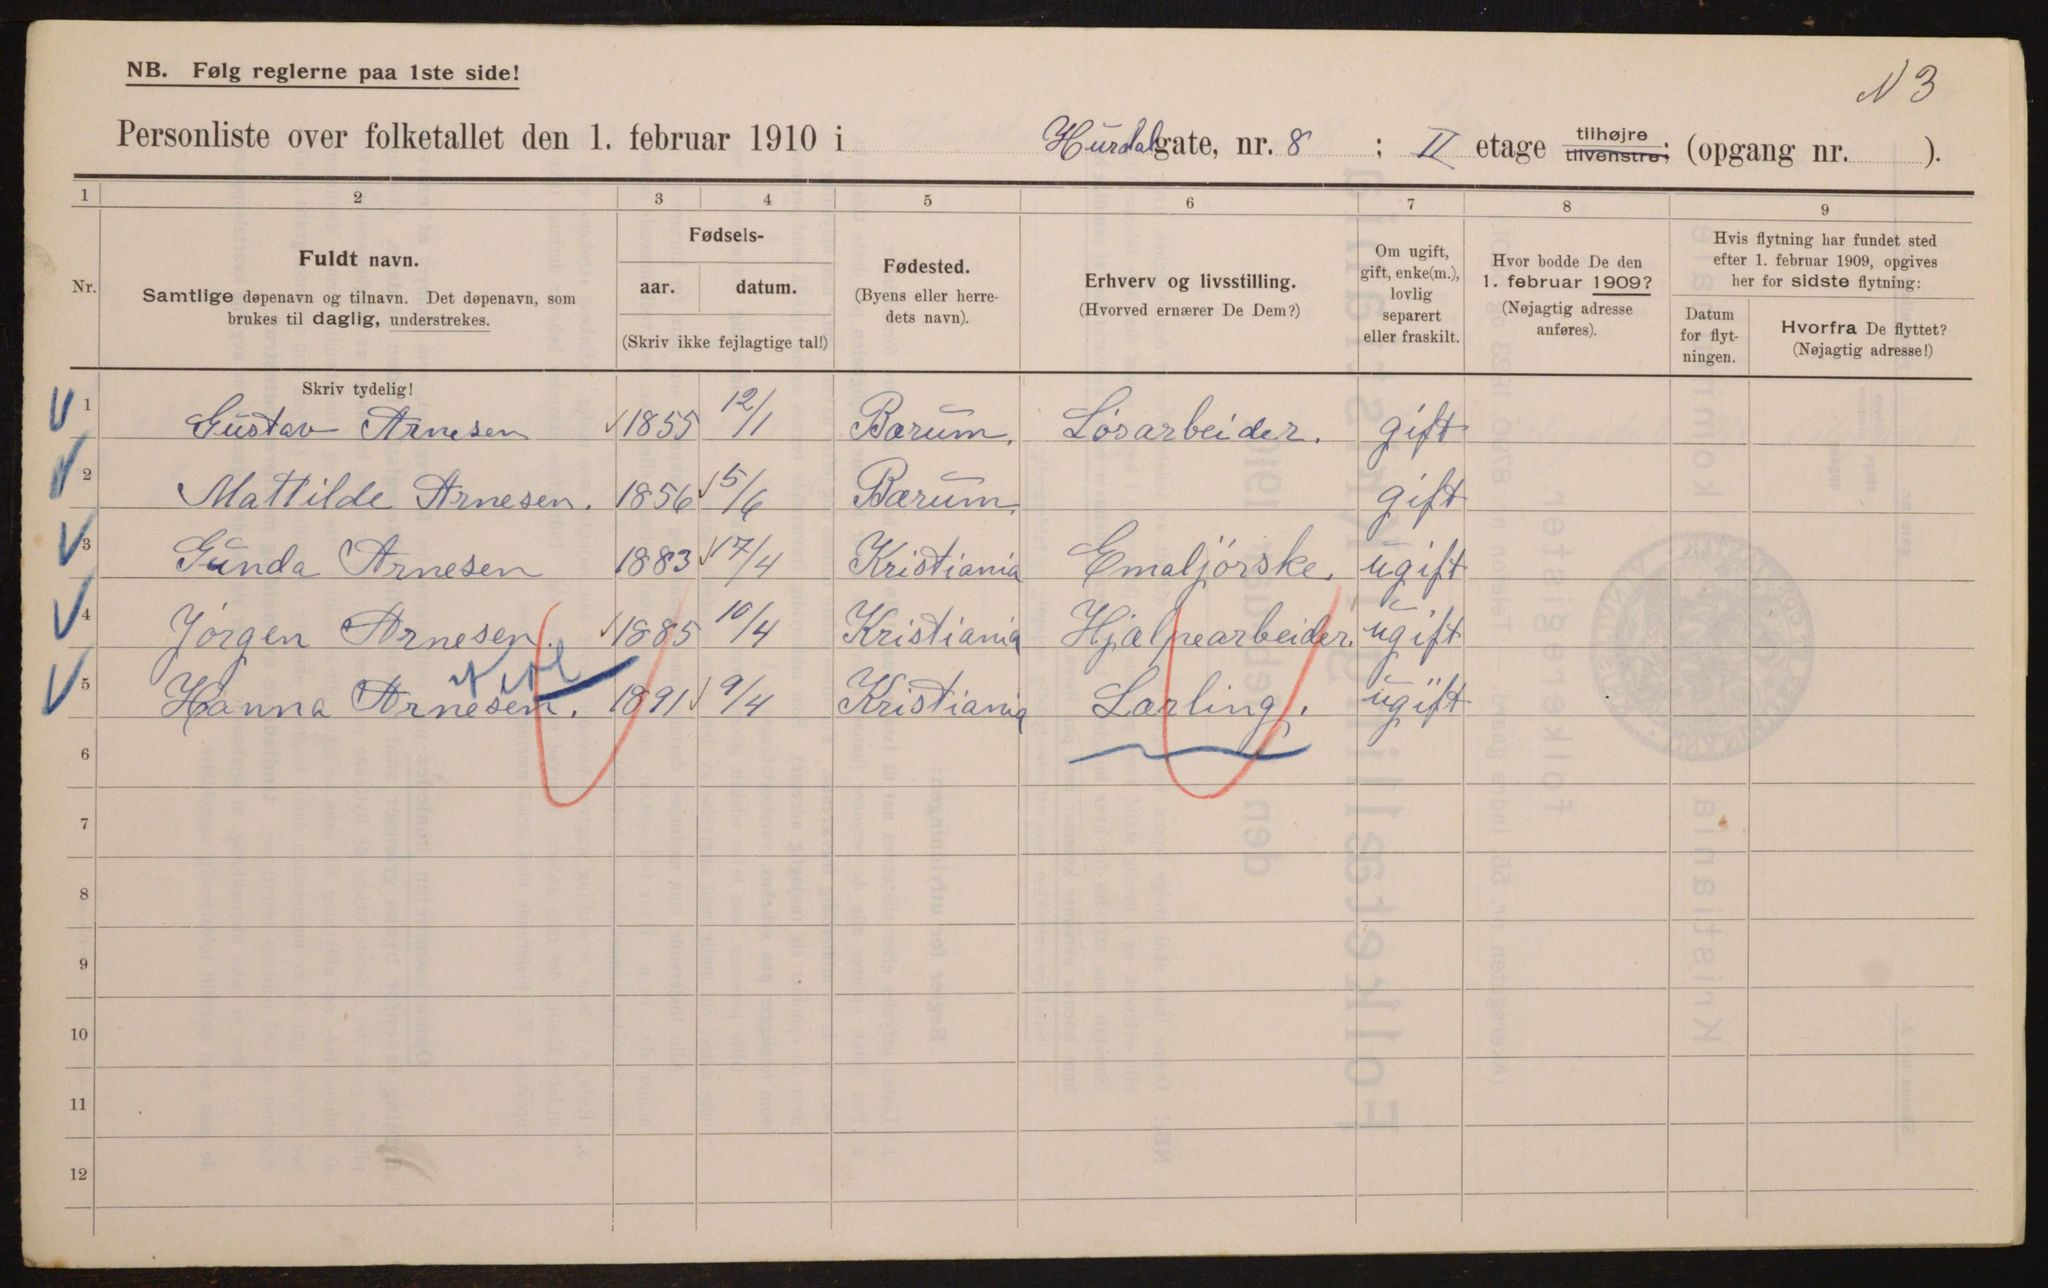 N 3
NB. Følg reglerne paa 1ste side!
Personliste over folketallet den 1. februar 1910 i Hurdalgate, nr. 8 ; II etage tilhøjre tilvenstre; (opgang nr. ).
1 2 3 4 5 6 7 8 9
Nr.
Fuldt navn.
Samtlige døpenavn og tilnavn. Det døpenavn, som
brukes til daglig, understrekes.
Fødsels-
aar. datum.
(Skriv ikke fejlagtige tal!)
Fødested.
(Byens eller herre-
dets navn).
Erhverv og livsstilling.
(Hvorved ernærer De Dem?)
Om ugift,
gift, enke(m.),
lovlig
separert
eller fraskilt.
Hvor bodde De den
1. februar 1909?
(Nøjagtig adresse
anføres).
Hvis flytning har fundet sted
efter 1. februar 1909, opgives
her for sidste flytning:
Datum
for flyt-
ningen.
Hvorfra De flyttet?
(Nøjagtig adresse!)
Skriv tydelig!
1 Gustav Arnesen 1855 12/1 Bærum. Løsarbeider. gift
2 Mathilde Arnesen. 1856 5/6 Bærum. gift
3 Gunda Arnesen 1883 17/4 Kristiania Emaljørske. ugift
4 Jørgen Arnesen. 1885 10/4 Kristiania Hjælpearbeider. ugift
5 Hanna Arnesen. 1891 9/4 Kristiania Lærling. ugift
6
7
8
9
10
11
12